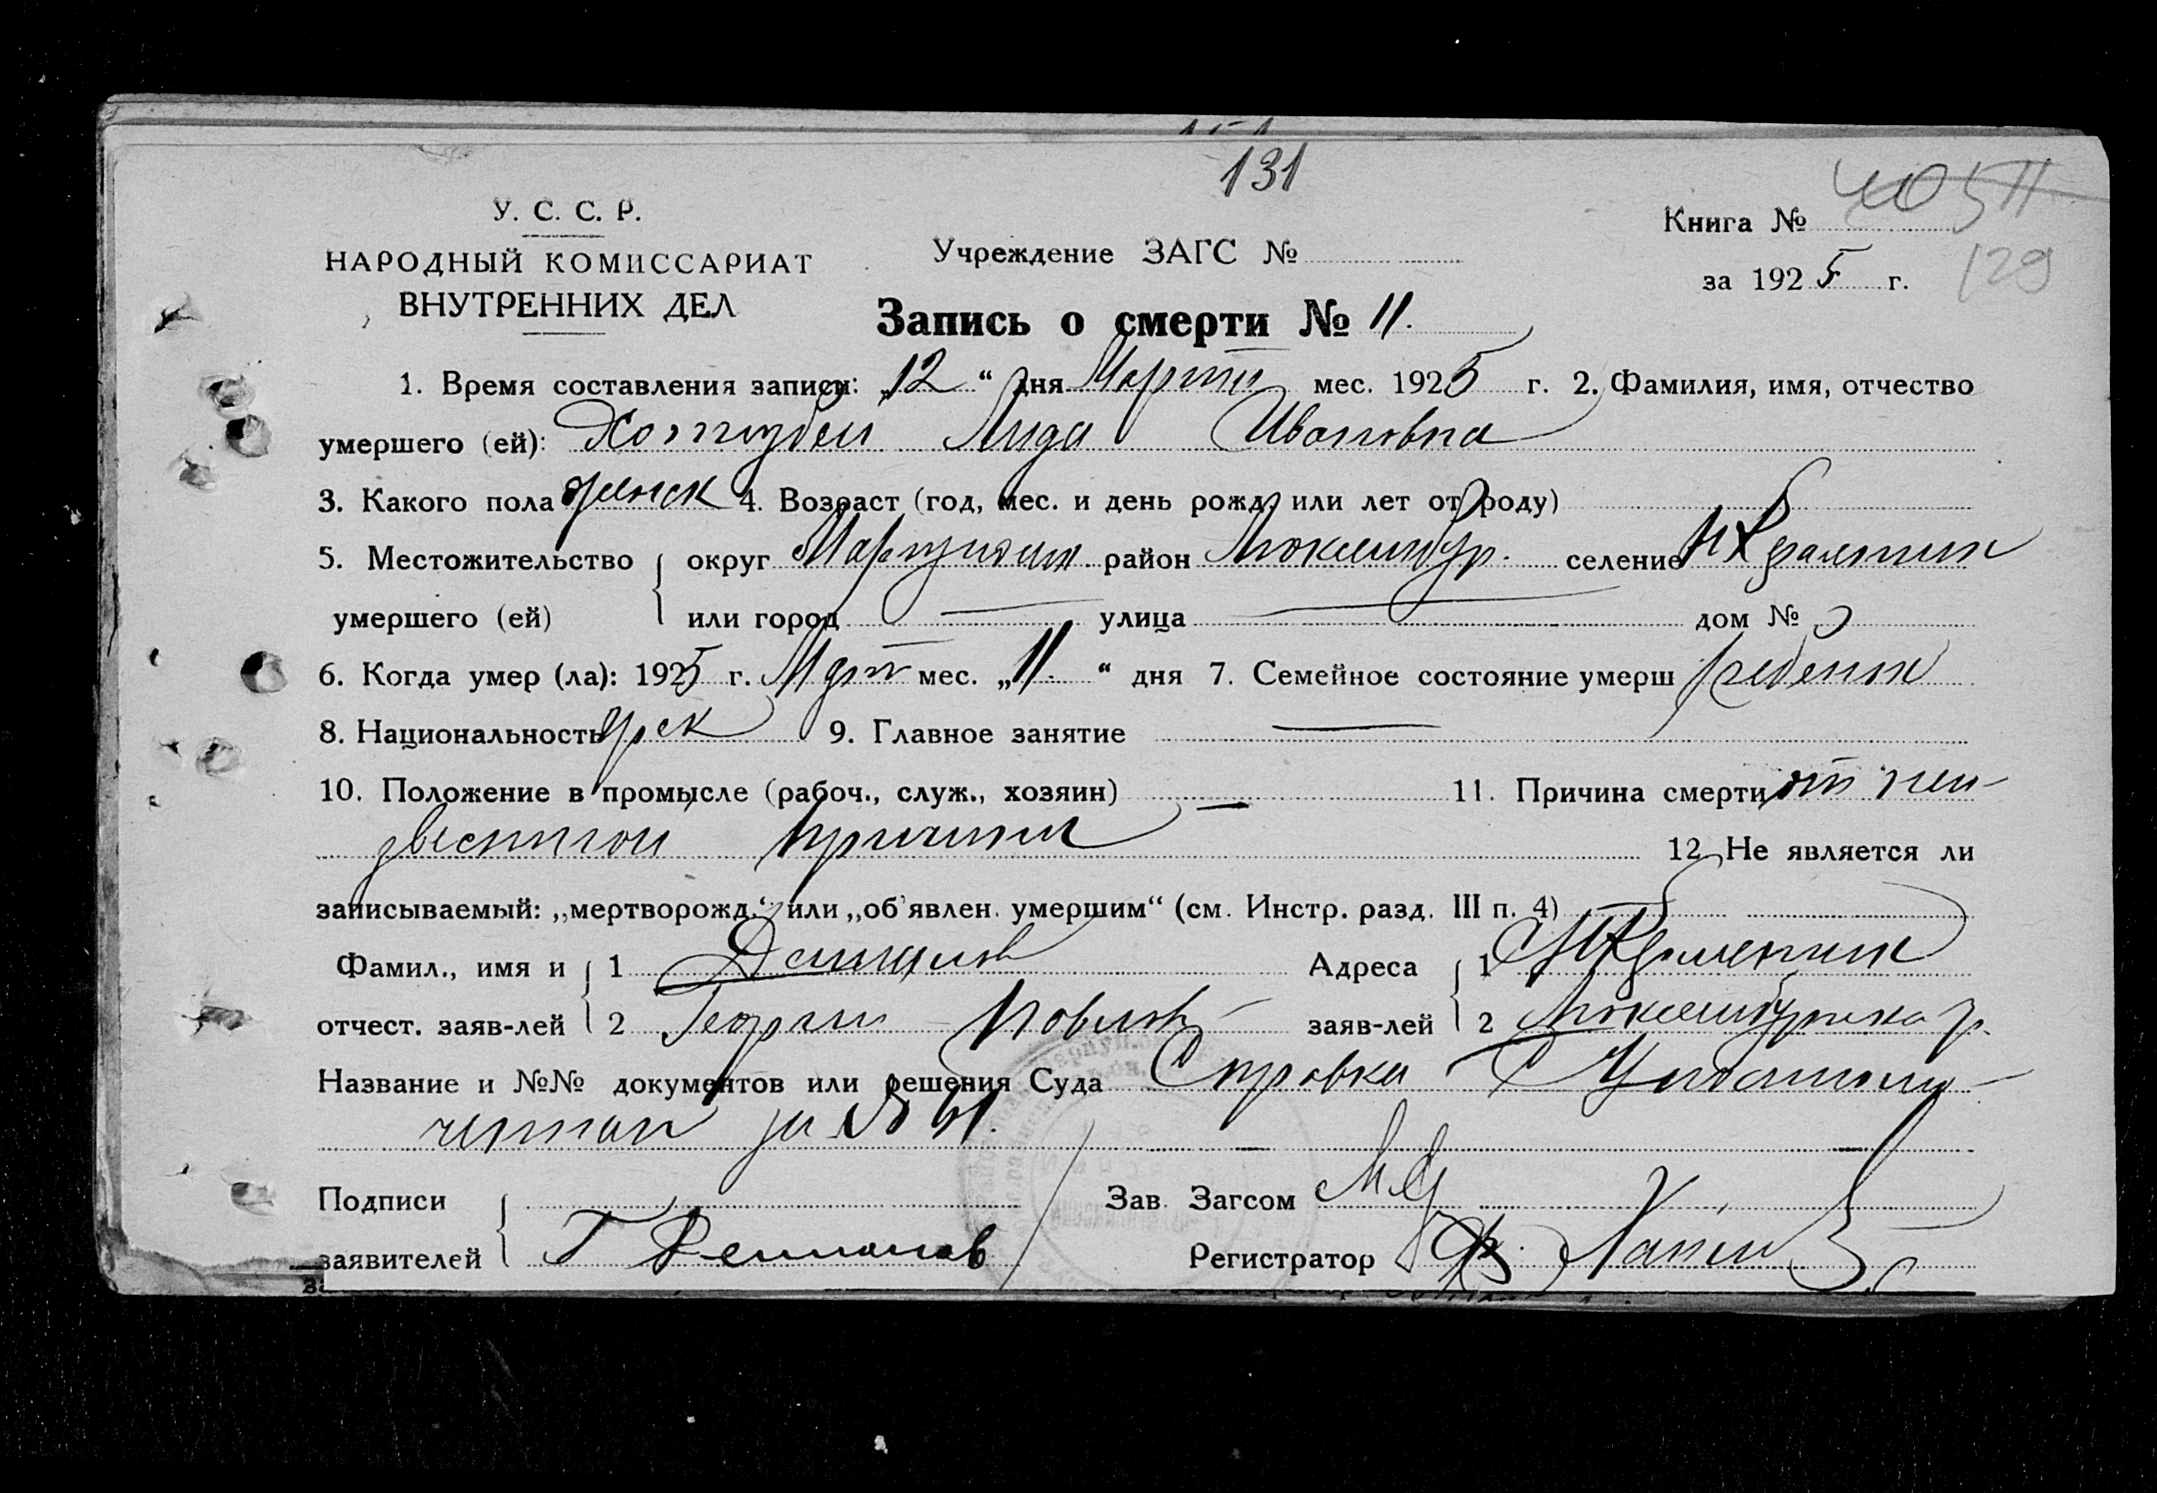 131
У. С. С. Р.
НАРОДНЫЙ КОМИССАРИАТ
ВНУТРЕННИХ ДЕЛ
Учреждение ЗАГС №
Книга №
за 1925 г.
129
Запись о смерти № 11.
1. Время составления записи: „12“ дня Марта мес. 1925 г. 2. Фамилия, имя, отчество
умершего (ей): Лида Ивановна
3. Какого пола женск 4. Возраст (год, мес. и день рожд. или лет от роду)
5. Местожительство округ Мариуполь район Люксембур. селение
умершего (ей) или город — улица — дом №
6. Когда умер (ла): 1925 г. Март мес. „11.“ дня 7. Семейное состояние умерш ребенок
8. Национальность грек 9. Главное занятие —
10. Положение в промысле (рабоч., служ., хозяин) — 11. Причина смерти от неи-
звестной причини
12. Не является ли
записываемый: „мертворожд.“ или „об'явлен. умершим“ (см. Инстр. разд. III п. 4)
Фамил., имя и 1 Адреса 1
отчест. заяв-лей 2 Георгий Павлов заяв-лей 2 Люксембургска р.
Название и №№ документов или решения Суда Справка
за №
Подписи
заявителей Г
Зав. Загсом
Регистратор